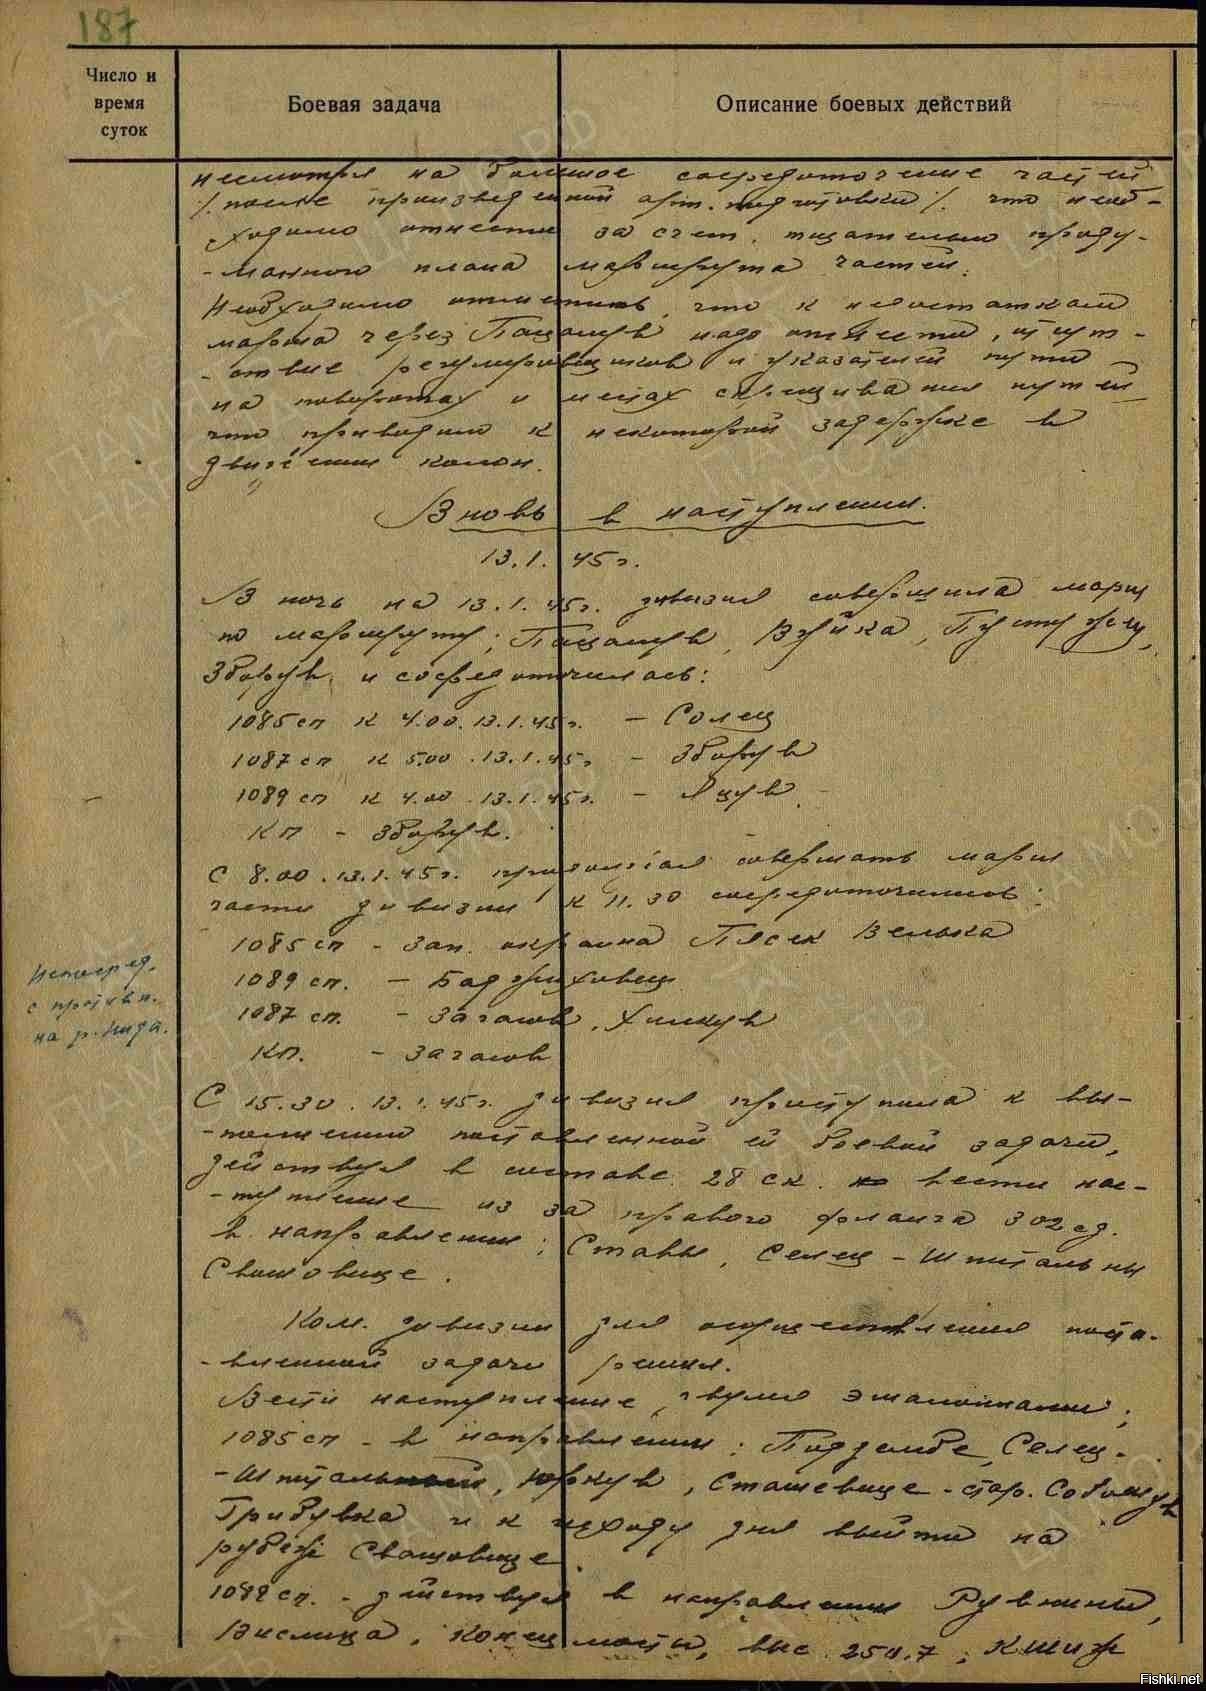 187
Число и время суток
Боевая задача
Описание боевых действий
несмотря на большое сосредоточение частей
/. после произведенной арт. подготовки /. что необ-
ходимо отнести за счет, тщательно проду-
-манного плана маршрута частей.
Необходимо отметить, что к недостаткам
марша через Пацанув надо отнести, отсут-
-ствие регулировщиков и указателей пути
на поворотах и местах скрещивания путей
что приводило к некоторой задержке в
движении колон.
Вновь в наступлении.
13.1.45г.
В ночь на 13.1.45г. дивизия совершила марш
по маршруту; Пацанув, Вуйка,
Зборув и сосредоточилась:
1085 сп к 4.00. 13.1.45г. – Солец
1087 сп к 5.00. 13.1.45г. – Зборув
1089 сп к 4.00. 13.1.45г. –
КП – Зборув.
С 8.00. 13.1.45г. продолжая совершать марш
части дивизии к 11.30 сосредоточились:
1085 сп – зап. окраина Пясек Велька
1089 сп. –
1087 сп. – Загаюв, Хинкув
КП. – Загаюв
Непосред.
с противн.
на р. Нида.
С 15.30. 13.1.45г. дивизия приступила к вы-
-полнению поставленной ей боевой задачи,
действуя в составе 28 ск. вести нас-
-тупление из за правого фланга 302 сд.
в направлении; Ставы, Селец – Шпитальны
Свошовице.
Ком. дивизии для осуществления поста-
-вленной задачи решил.
Вести наступление двумя эшалонами;
1085 сп – в направлении: Селец-
-Шпитальный, Юркув, Сташевице – стар.
Грибувка и к исходу дня выйти на
рубеж Свошовице.
1089 сп. – действуя в направлении
Вислица, мосты, выс. 250,7,
Fishki.net